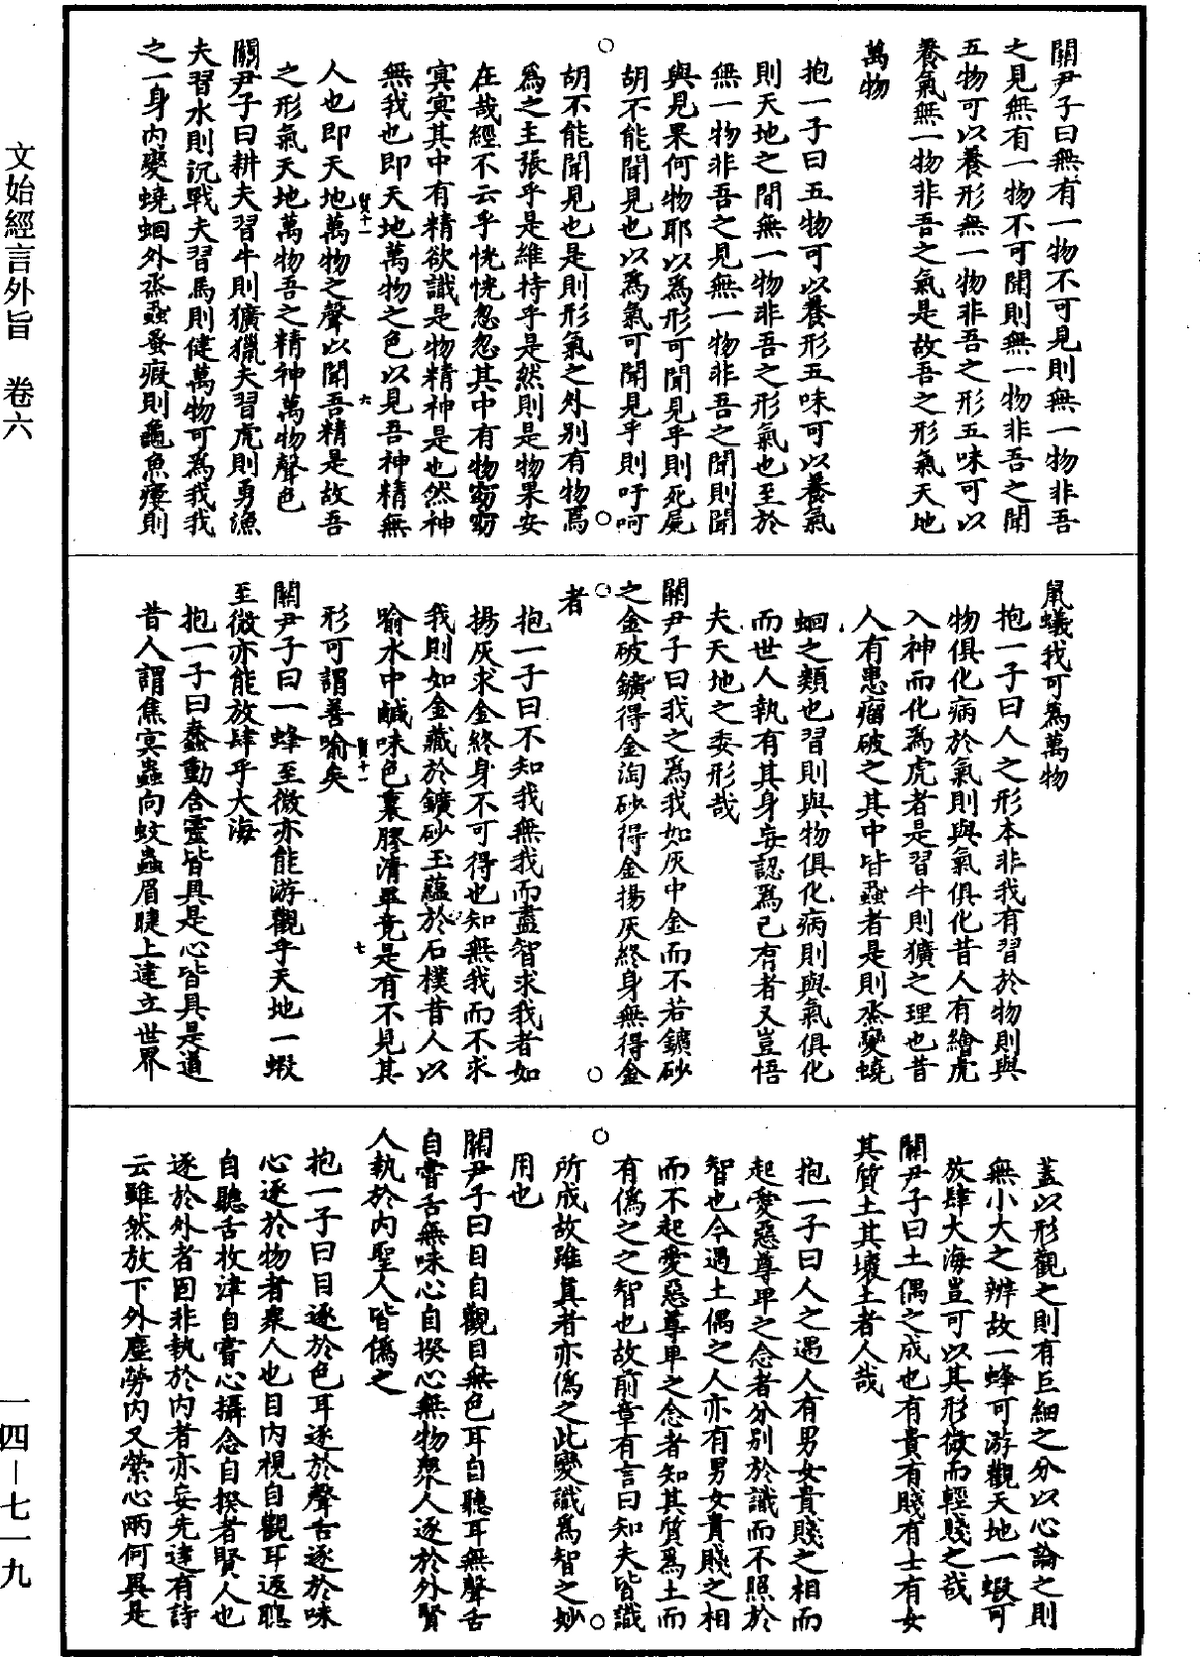 關尹子曰無有一物不可見則無一物非吾
之見無有一物不可聞則無一物非吾之聞
五物可以養形無一物非吾之形五味可以
養氣無一物非吾之氣是故吾之形氣天地
萬物
抱一子曰五物可以養形五味可以養氣
則天地之間無一物非吾之形氣也至於
無一物非吾之見無一物非吾之聞則聞
與見果何物耶以為形可聞見乎則死屍
胡不能聞見也以為氣可聞見乎則吁呵
胡不能聞見也是則形氣之外別有物焉
為之主張乎是維持乎是然則是物果安
在哉經不云乎恍恍忽忽其中有物窈窈
冥冥其中有精欲識是物精神是也然神
無我也即天地萬物之色以見吾神精無
人也即天地萬物之聲以聞吾精是故吾
之形氣天地萬物吾之精神萬物聲色
關尹子曰耕夫習牛則獷獵夫習虎則勇漁
夫習水則沉戰夫習馬則健萬物可為我我
之一身內變蟯蛔外烝蝨蚤瘕則龜魚瘻則
鼠蟻我可為萬物
抱一子曰人之形本非我有習於物則與
物俱化病於氣則與氣俱化昔人有繪虎
入神而化為虎者是習牛則獷之理也昔
人有患瘤破之其中皆蝨者是則烝變蟯
蛔之類也習則與物俱化病則與氣俱化
而世人執有其身妄認為己有者又豈悟
夫天地之委形哉
關尹子曰我之為我如灰中金而不若鑛砂
之金破鑛得金淘砂得金揚灰終身無得金
者
抱一子曰不知我無我而盡智求我者如
揚灰求金終身不可得也知無我而不求
我則如金藏於鑛砂玉蘊於石樸昔人以
喻水中鹹味色裏膠清畢竟是有不見其
形可謂善喻矣
關尹子曰一蜂至微亦能游觀乎天地一蝦
至微亦能放肆乎大海
抱一子曰蠢動含靈皆具是心皆具是道
昔人謂焦冥蟲向蚊蟲眉睫上建立世界
蓋以形觀之則有巨細之分以心論之則
無小大之辨故一蜂可游觀天地一蝦可
放肆大海豈可以其形微而輕賤之哉
關尹子曰土偶之成也有貴有賤有士有女
其質土其壞土者人哉
抱一子曰人之遇人有男女貴賤之相而
起愛惡尊卑之念者分別於識而不照於
智也今遇土偶之人亦有男女貴賤之相
而不起愛惡尊卑之念者知其質為土而
有偽之之智也故前章有言曰知夫皆識
所成故雖真者亦偽之此變識為智之妙
用也
關尹子曰目自觀目無色耳自聽耳無聲舌
自嘗舌無味心自揆心無物衆人逐於外賢
人執於內聖人皆偽之
抱一子曰目逐於色耳逐於聲舌逐於味
心逐於物者衆人也目內視自觀耳返聽
自聽舌枚津自嘗心攝念自揆者賢人也
逐於外者固非執於內者亦妄先達有詩
云雖然放下外塵勞內又縈心兩何異是
文始經言外旨 卷六
一四—七一九